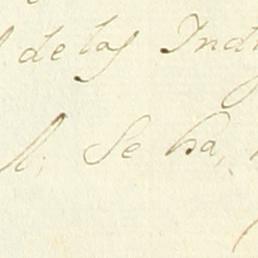 de las Ind
Se ha,